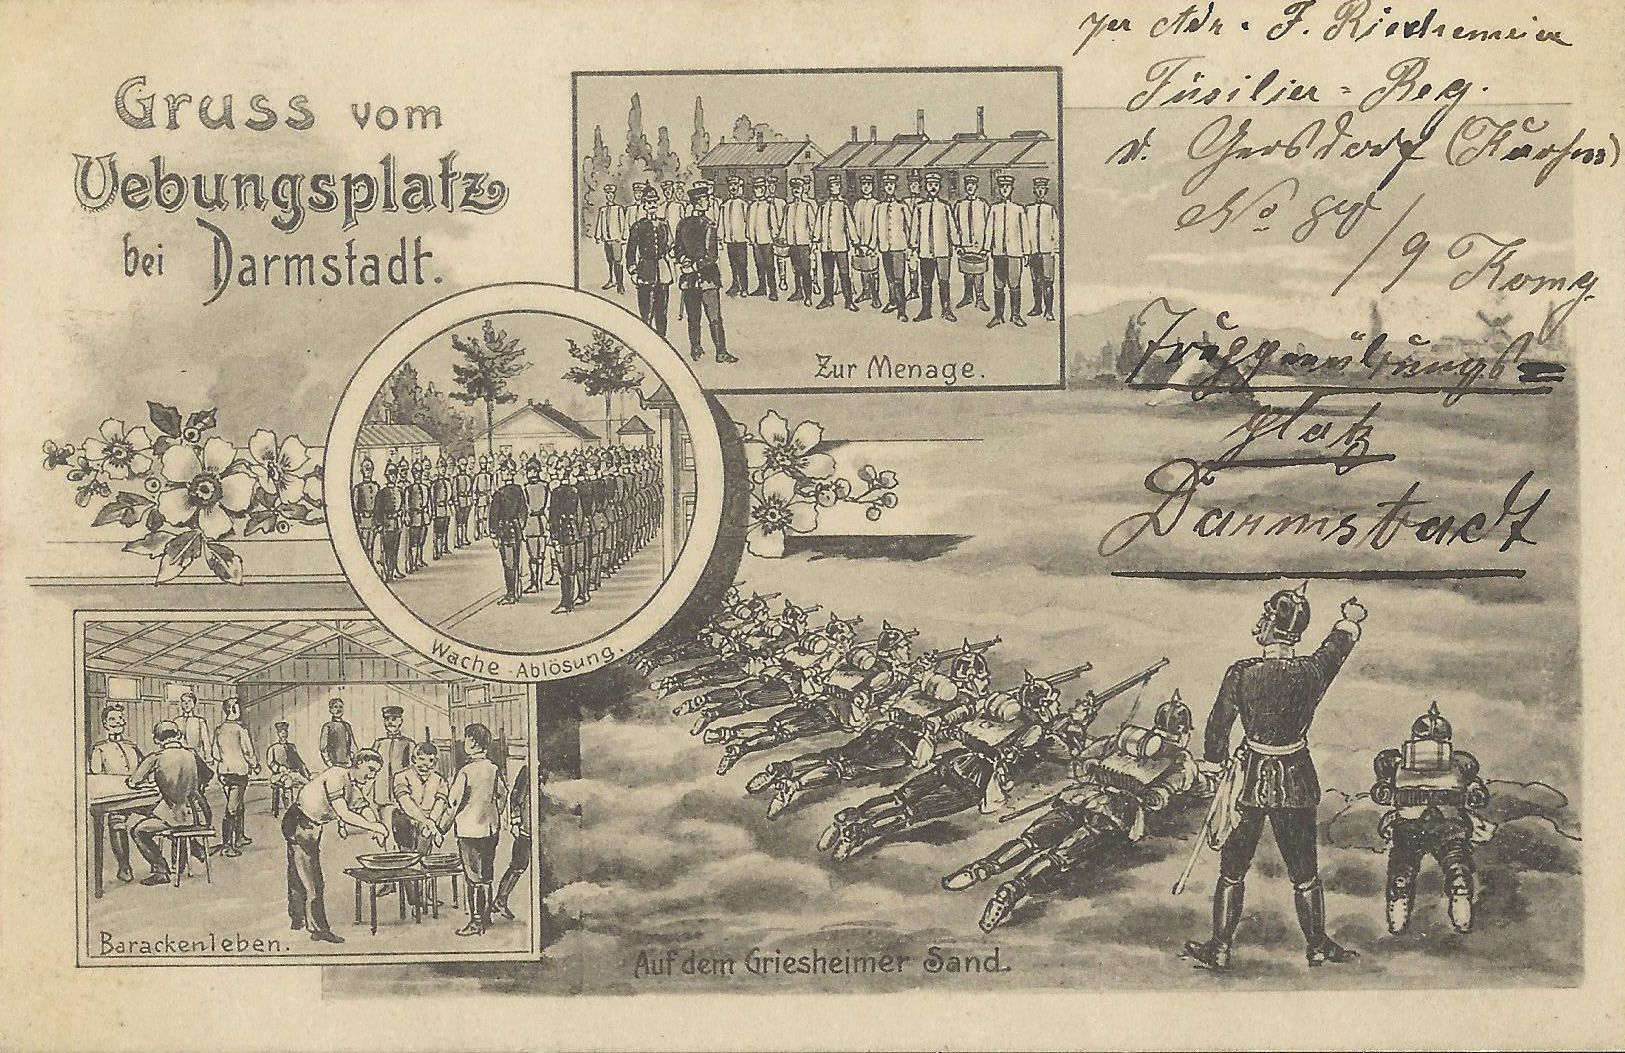 Gruss vom
Uebungsplatz
bei Darmstadt.
Zur Menage.
Wache-Ablösung.
Barackenleben.
Auf dem Griesheimer Sand.
per Adr. F.
Füsilier-Reg.
v. Gersdorf
No 80 / 9 Komp.
Truppenübungs=
platz
Darmstadt